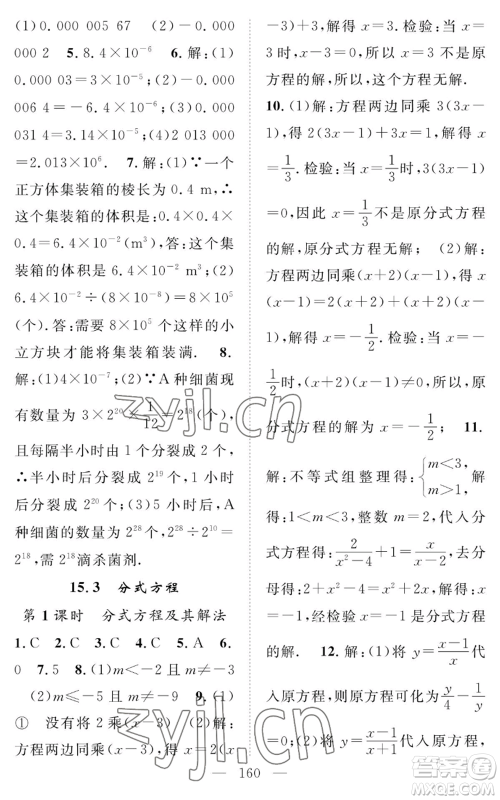 (1)0.000 005 67　(2)-0.000
000 2　5.8.4×10⁻⁶　6.解:(1)
0.000 03=3×10⁻⁵;(2)-0.000
006 4=-6.4×10⁻⁶;(3)0.000
031 4=3.14×10⁻⁵;(4)2 013 000
=2.013×10⁶.　7.解:(1)∵一个
正方体集装箱的棱长为 0.4 m,∴
这个集装箱的体积是:0.4×0.4×
0.4=6.4×10⁻²(m³),答:这个集
装箱的体积是 6.4×10⁻² m³;(2)
6.4×10⁻²÷(8×10⁻⁸)=8×10⁵
(个).答:需要 8×10⁵ 个这样的小
立方块才能将集装箱装满.　8.
解:(1)4×10⁻⁷;(2)∵A 种细菌现
有数量为 3×2²⁰×1/12=2¹⁸(个),
且每隔半小时分裂成两个,
∴半小时后分裂成 2¹⁹(个),1 小
时后分裂成 2²⁰个;(3)5 小时后,A
种细菌的数量为 2²⁸÷2¹⁰=
2¹⁸,需 2¹⁸滴杀菌剂.
15.3　分式方程
第 1 课时　分式方程及其解法
1.C　2.C　3.C　4.C　5.A　6.
0　7.5　8.(1)m<-2 且 m≠-3
(2)m≤-2 且 m≠-3　9.(1)
①　没有将 2 乘(x-3)　(2)解:
方程两边同乘(x-3),得 1-x=
-3)+3,解得 x=3.检验:当 x=
3 时,x-3=0,因此 x=3 不是原分
式方程的解,∴这个方程无解.
10.(1)解:方程两边同乘 3(3x-
1),得 2(3x-1)+3x=1,解得 x
=1/3.检验:当 x=1/3时,3(3x-1)
=0,因此 x=1/3不是原分式方程
的解,原分式方程无解;　(2)解:
方程两边同乘(x+2)(x-1),得 x
(x-1)=2(x+2)+(x+2)(x-
1),解得 x=-1/2.检验:当 x=-
1/2时,(x+2)(x-1)≠0,所以,原
分式方程的解为 x=-1/2.　11.
解:不等式组整理得:{m<3, m>1,
即 1<m<3,整数 m=2,代入分
式方程得:2/(x²-4)+x/(x-2)=1,去分
母得:2+x(x+2)=x²-4,解得 x
=-3,经检验 x=-3 是分式方程
的解.　12.解:(1)将 y=(x-1)/x代
入原方程,则原方程可化为y/4-1/y
=0;(2)将 y=(x-1)/(x+1)代入方程,
160
zyjl.cn
zyjl.cn